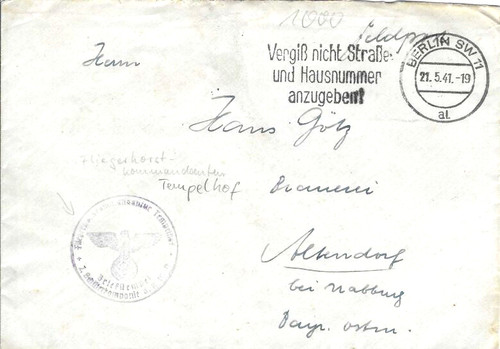 1000
Feldpost
Vergiß nicht Straße
und Hausnummer
anzugeben!
BERLIN SW 11
21.5.41.-19
al
Herrn
Hans Götz
Fliegerhorst-
kommandantur
Tempelhof
Brauerei
Altendorf
bei Nabburg
Bayr. Ostm.
Briefstempel